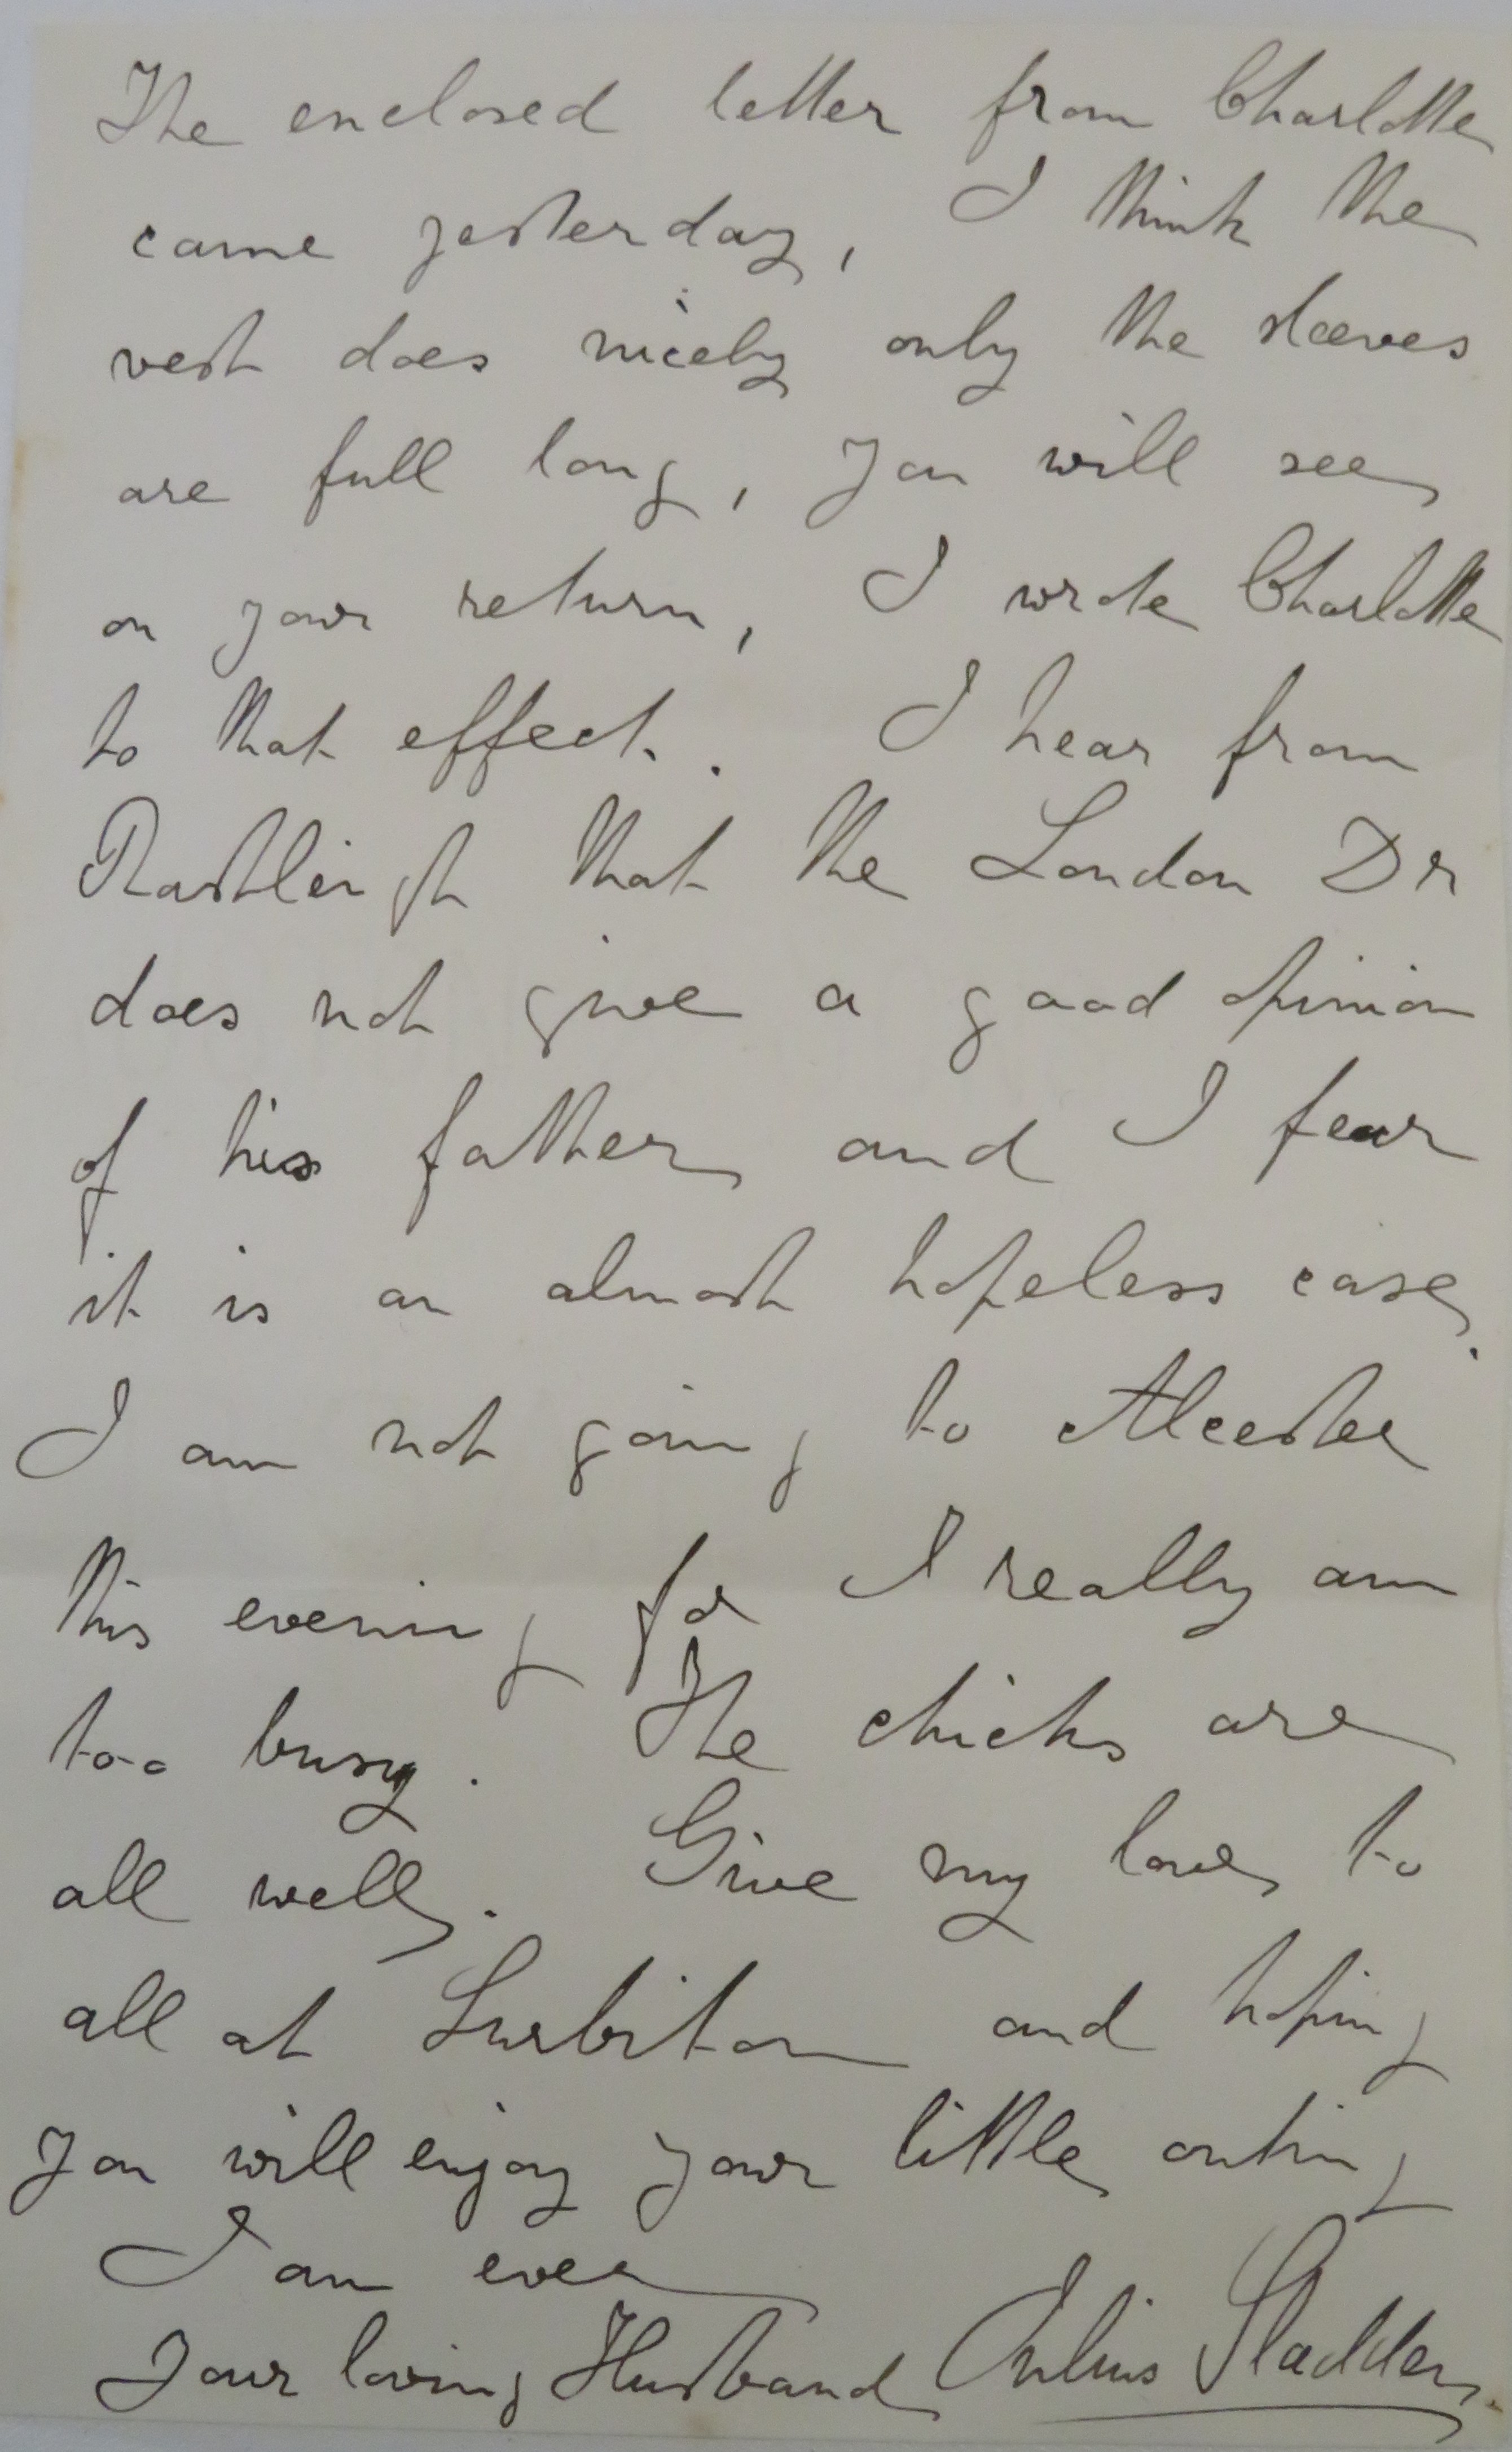 The enclosed letter from Charlotte
came yesterday, I think the
vest does nicely only the sleeves
are full long, you will see
on your return, I wrote Charlotte
to that effect. I hear from
Rastleigh that the London Dr
does not give a good opinion
of his father and I fear
it is an almost hopeless case.
I am not going to Alcester
this evening for I really am
too busy. The chicks are
all well. Give my love to
all at Surbiton and hoping
you will enjoy your little outing
I am ever
Your loving Husband Julius Sladden